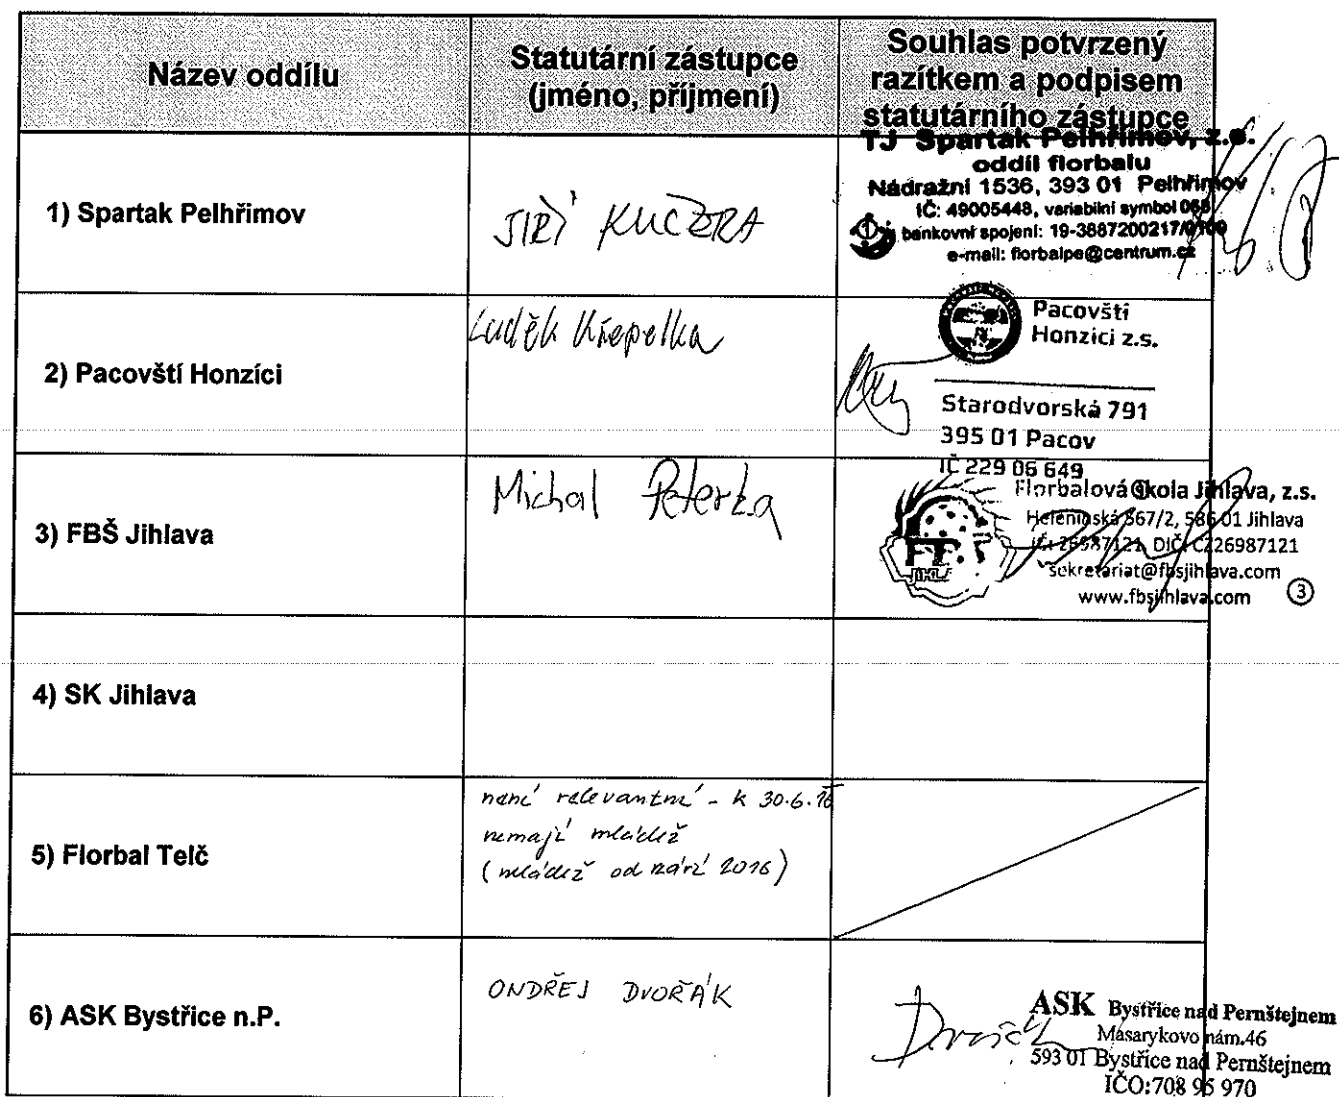 Název oddílu
Statutární zástupce
(jméno, příjmení)
Souhlas potvrzený
razítkem a podpisem
statutárního zástupce
1) Spartak Pelhřimov
JIŘÍ KUČERA
TJ Spartak Pelhřimov, z.s.
oddíl florbalu
Nádražní 1536, 393 01 Pelhřimov
IČ: 49005448, variabilní symbol 068
bankovní spojení: 19-3887200217/0100
e-mail: florbalpe@centrum.cz
2) Pacovští Honzíci
Luděk Křepelka
Pacovští
Honzíci z.s.
Starodvorská 791
395 01 Pacov
IČ 229 06 649
3) FBŠ Jihlava
Michal Peterka
Florbalová škola Jihlava, z.s.
567/2, 586 01 Jihlava
IČ: 26987121, DIČ: CZ26987121
sekretariat@fbsjihlava.com
www.fbsjihlava.com
3
4) SK Jihlava
5) Florbal Telč
není relevantní - k 30.6.
nemají mládež
(mládež od září 2016)
6) ASK Bystřice n.P.
ONDŘEJ DVOŘÁK
Dvořák
ASK Bystřice nad Pernštejnem
Masarykovo nám.46
593 01 Bystřice nad Pernštejnem
IČO:708 95 970